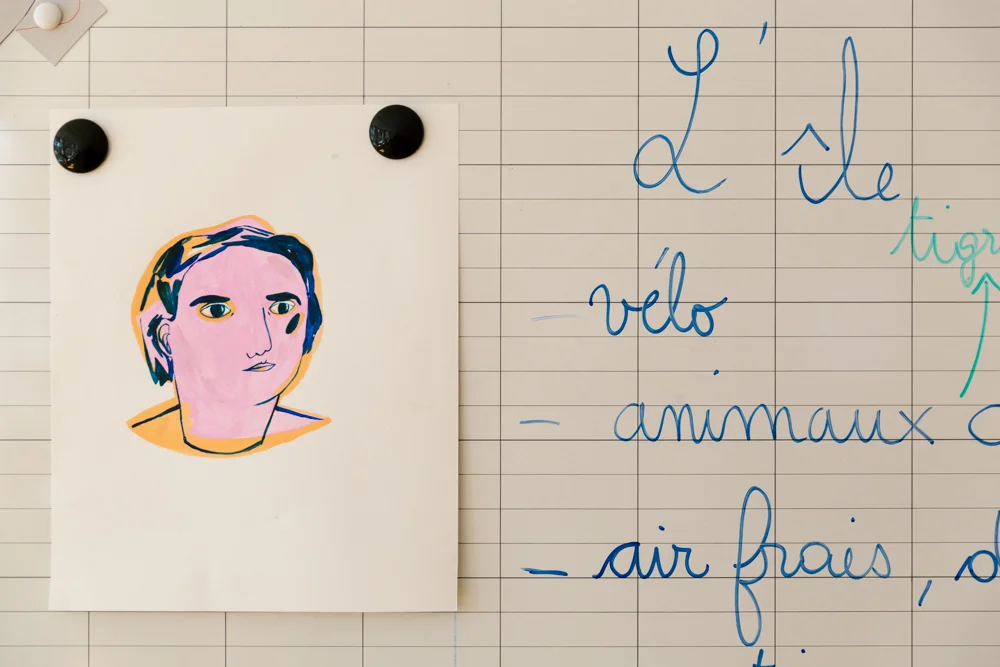 L'île
- vélo
- animaux
- air frais,